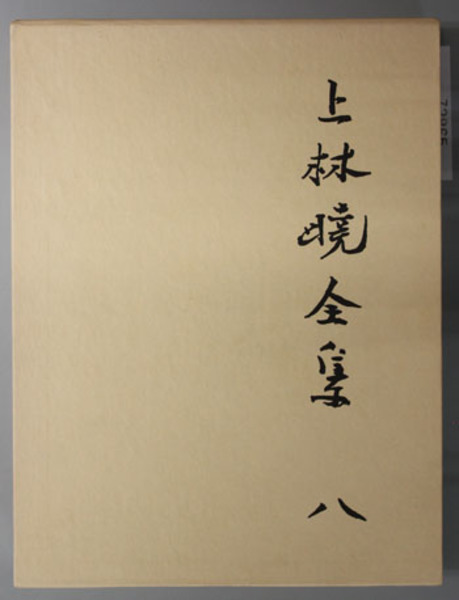 上林暁全集 八